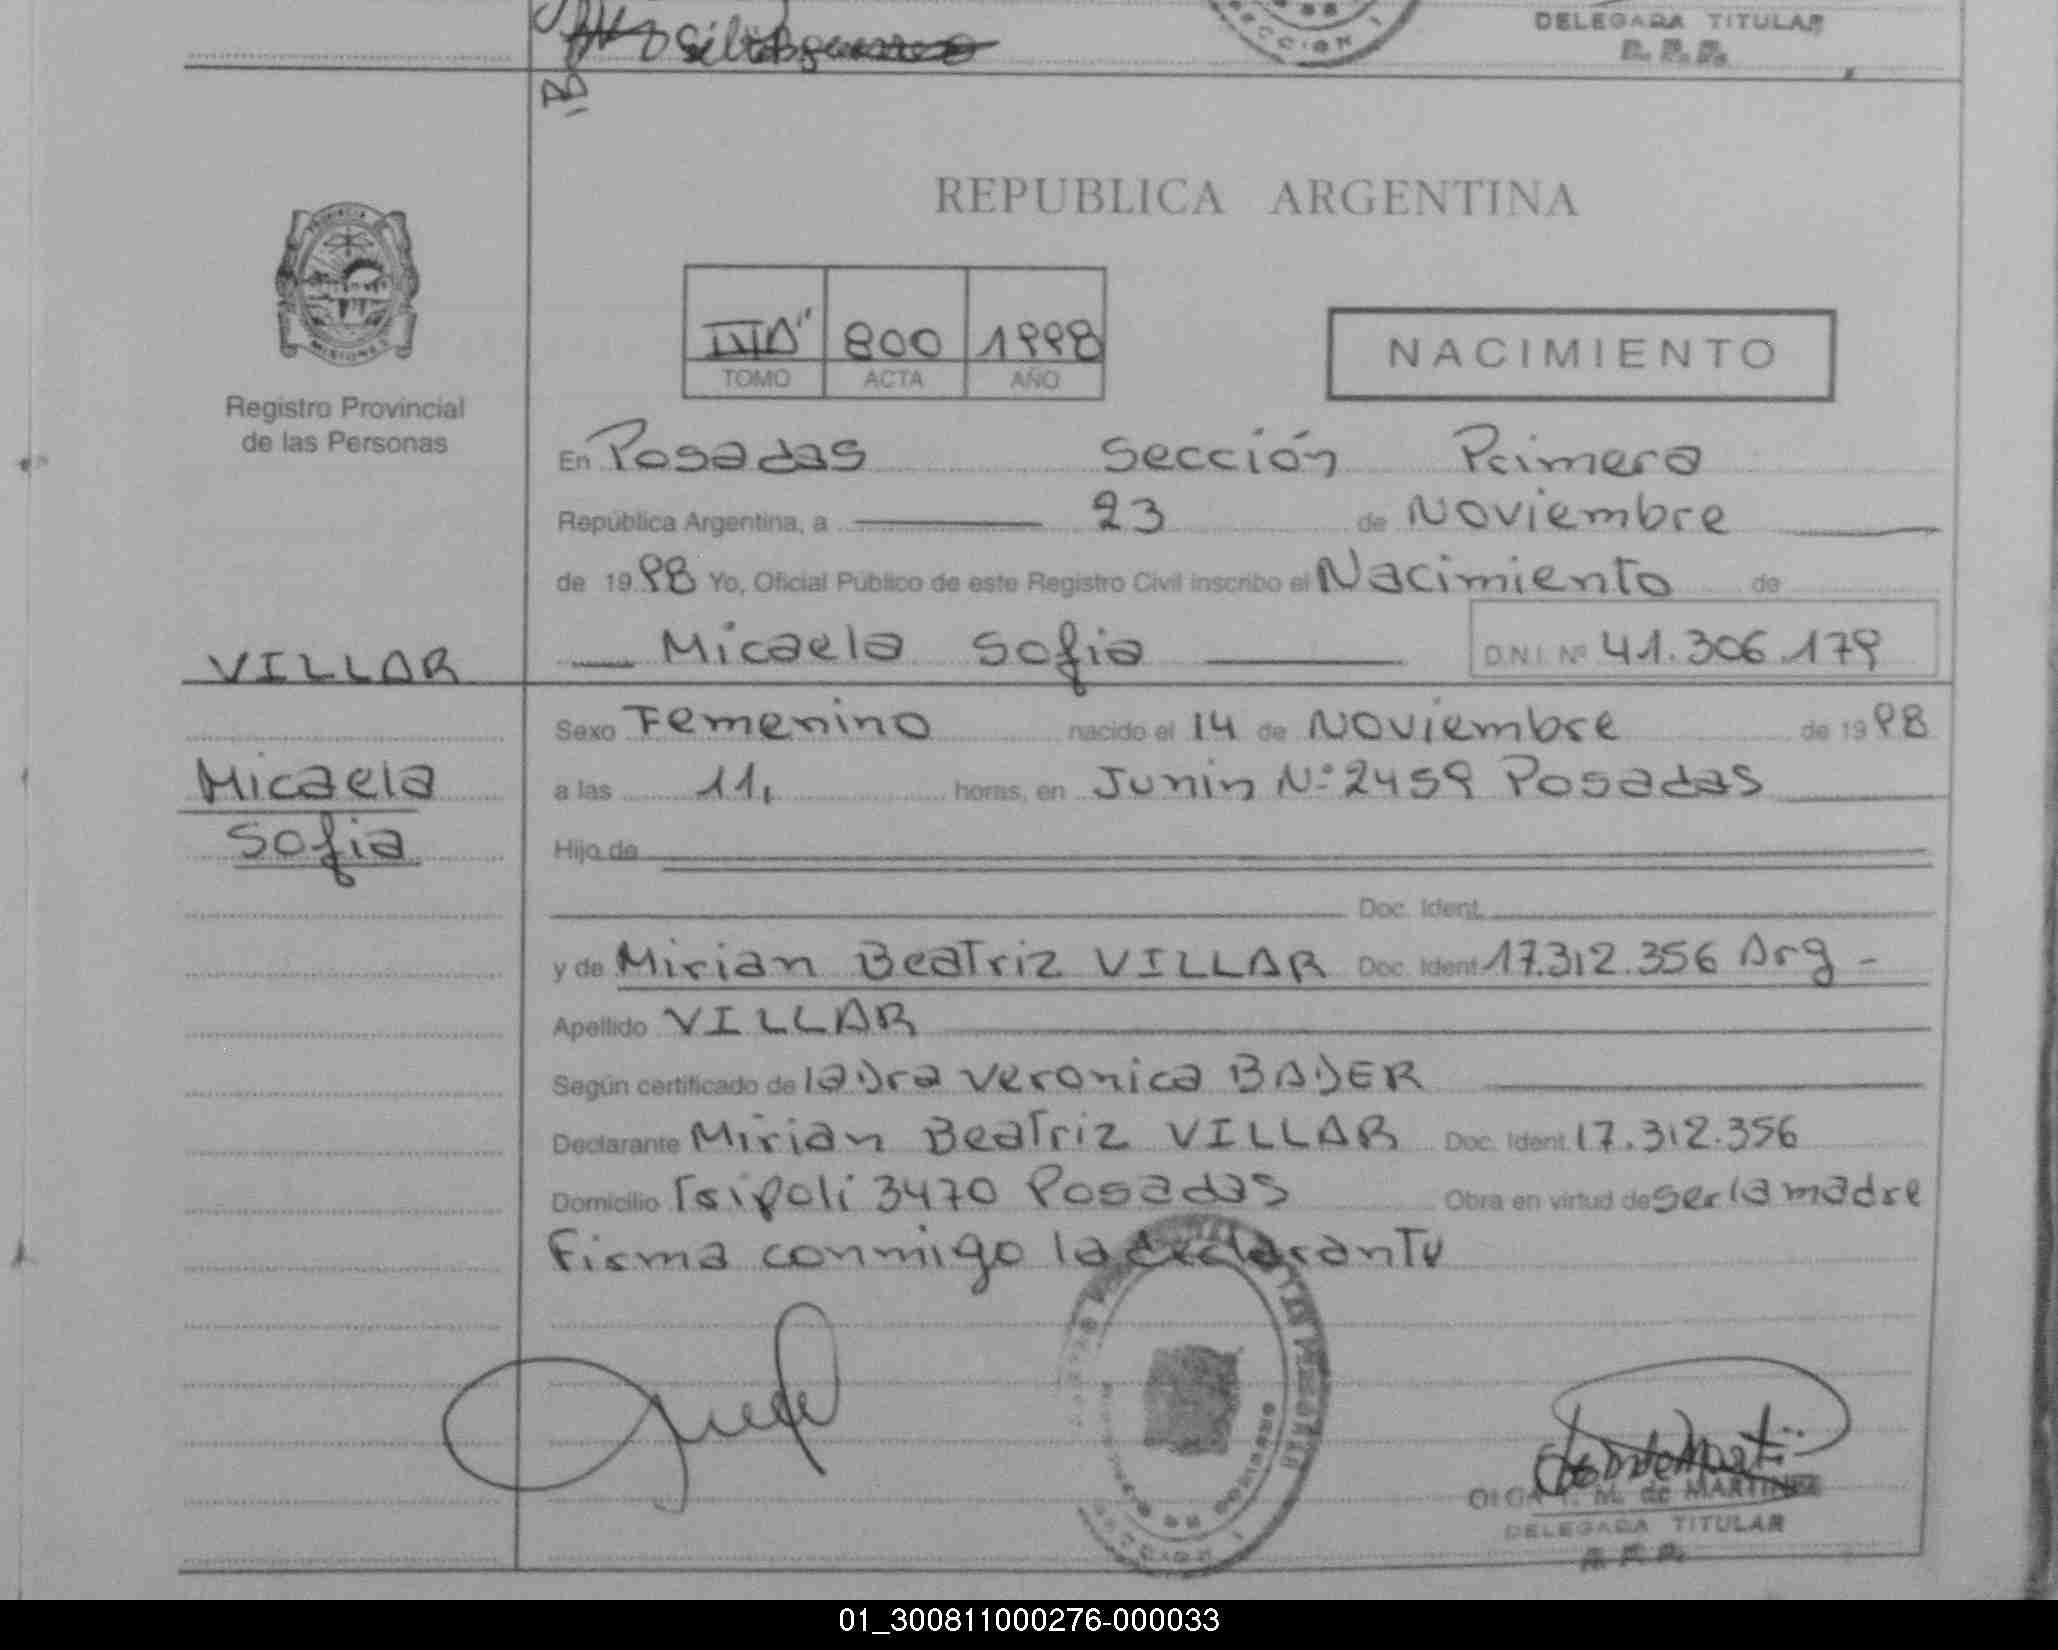 DELEGADA TITULAR
R. P. P.
REPUBLICA ARGENTINA
PROVINCIA
MISIONES
800 1998
TOMO ACTA AÑO
NACIMIENTO
Registro Provincial
de las Personas
En Posadas Sección Primera
República Argentina, a 23 de Noviembre
de 1998 Yo, Oficial Público de este Registro Civil inscribo el Nacimiento de
VILLAR
Micaela Sofia D.N.I. Nº 41.306.179
Sexo Femenino nacido el 14 de Noviembre de 1998
Micaela
Sofia
a las 11, horas, en Junin Nº 2459 Posadas
Hijo de
Doc. Ident.
y de Mirian Beatriz VILLAR Doc. Ident 17.312.356 Arg -
Apellido VILLAR
Según certificado de la Dra Veronica BADER
Declarante Mirian Beatriz VILLAR Doc. Ident. 17.312.356
Domicilio Tripoli 3470 Posadas Obra en virtud de ser la madre
Firma conmigo la declarante
OLGA T. M. de MARTINEZ
DELEGADA TITULAR
R. P. P.
01_300811000276-000033